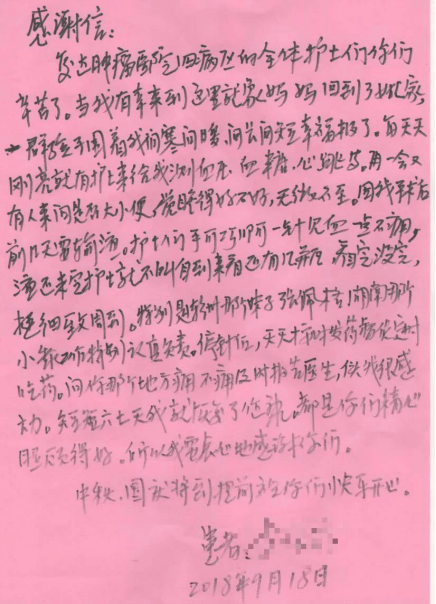 感谢信：
安达肿瘤医院四病区的全体护士们你们
辛苦了。当我有幸来到这里就象妈妈回到了娘家，
一群孩子围着我们寒问暖，问长问短幸福极了。每天天
刚亮就有护士来给我测血压 血糖、心跳等。再一会又
有人来问是否大小便，觉睡得好不好，无微不至。因我手术后
前几天需输液。护士们手可巧叫一针见血一点不痛，
液还未完护士就不叫自到来看还有几瓶 看完没完，
细致周到。特别是徐州那妹子张佩 湖南那个
小 特别认真负责。 天天按时发药督促定时
吃药。问你那个地方痛不痛及时报告医生，使我很感
动。短短六七天我就恢复了 。都是你们精心
照顾得好。所以我衷心地感谢你们。
中秋、国庆将到，提前祝你们快乐开心。
患者：
2018年9月18日